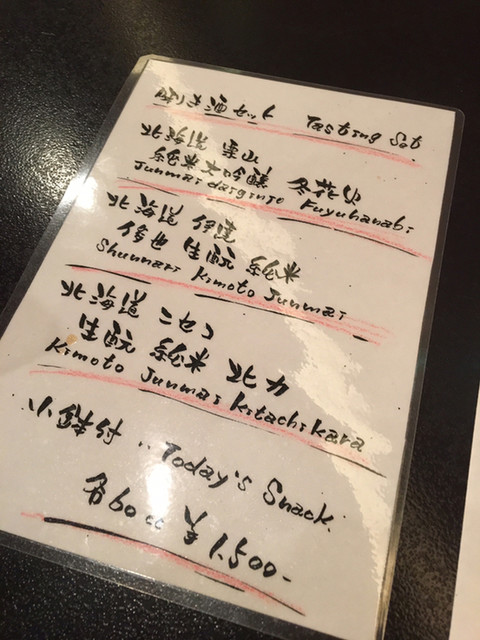 利き酒セット Tasting Set
北海道
純米大吟醸 冬花火
Junmai daiginjo Fuyuhanabi
北海道 伊達
生酛 純米
Shunnari Kimoto Junmai
北海道 ニセコ
生酛 純米 北力
Kimoto Junmai Kitachikara
小鉢付 .. Today's Snack.
各60cc ¥1.500-